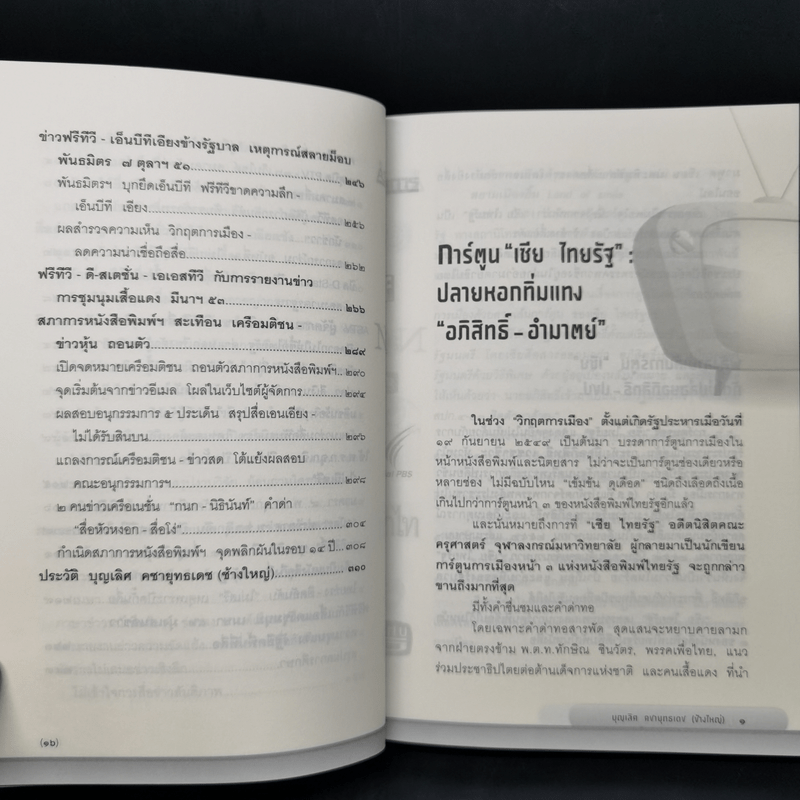 ข่าวฟรีทีวี - เอ็นบีทีเอียงข้างรัฐบาล เหตุการณ์สลายม็อบ
พันธมิตร ๗ ตุลาฯ ๕๑...............................๒๔๖
พันธมิตรฯ บุกยึดเอ็นบีที ฟรีทีวีขาดความลึก -
เอ็นบีที เอียง.......................................๒๕๖
ผลสำรวจความเห็น วิกฤตการเมือง -
ลดความน่าเชื่อถือสื่อ...................................๒๖๒
ฟรีทีวี - ดี-สเตชั่น - เอเอสทีวี กับการรายงานข่าว
การชุมนุมเสื้อแดง มีนาฯ ๕๓...............................๒๖๖
สภาการหนังสือพิมพ์ฯ สะเทือน เครือมติชน -
ข่าวหุ้น ถอนตัว.......................................๒๘๙
เปิดจดหมายเครือมติชน ถอนตัวสภาการหนังสือพิมพ์ฯ..๒๙๐
จุดเริ่มต้นจากข่าวอีเมล โผล่ในเว็บไซต์ผู้จัดการ........๒๙๔
ผลสอบอนุกรรมการ ๕ ประเด็น สรุปสื่อเอนเอียง -
ไม่ได้รับสินบน.......................................๒๙๖
แถลงการณ์เครือมติชน - ข่าวสด โต้แย้งผลสอบ
คณะอนุกรรมการฯ.......................................๒๙๘
๒ คนข่าวเครือเนชั่น “กนก - นิธินันท์” คำด่า
“สื่อหัวหงอก - สื่อโง่”...............................๓๐๔
กำเนิดสภาการหนังสือพิมพ์ฯ จุดพลิกผันในรอบ ๑๔ ปี...๓๐๘
ประวัติ บุญเลิศ คชายุทธเดช (ช้างใหญ่)...................๓๑๐
(๑๖)
การ์ตูน “เซีย ไทยรัฐ” :
ปลายหอกทิ่มแทง
“อภิสิทธิ์ - อำมาตย์”
ในช่วง “วิกฤตการเมือง” ตั้งแต่เกิดรัฐประหารเมื่อวันที่
๑๙ กันยายน ๒๕๔๙ เป็นต้นมา บรรดาการ์ตูนการเมืองใน
หน้าหนังสือพิมพ์และนิตยสาร ไม่ว่าจะเป็นการ์ตูนช่องเดียวหรือ
หลายช่อง ไม่มีฉบับไหน “เข้มข้น ดุเดือด” ชนิดถึงเลือดถึงเนื้อ
เกินไปกว่าการ์ตูนหน้า ๓ ของหนังสือพิมพ์ไทยรัฐอีกแล้ว
และนั่นหมายถึงการที่ “เซีย ไทยรัฐ” อดีตนิสิตคณะ
ครุศาสตร์ จุฬาลงกรณ์มหาวิทยาลัย ผู้กลายมาเป็นนักเขียน
การ์ตูนการเมืองหน้า ๓ แห่งหนังสือพิมพ์ไทยรัฐ จะถูกกล่าว
ขานถึงมากที่สุด
มีทั้งคำชื่นชมและคำด่าทอ
โดยเฉพาะคำด่าทอสารพัด สุดแสนจะหยาบคายลามก
จากฝ่ายตรงข้าม พ.ต.ท.ทักษิณ ชินวัตร, พรรคเพื่อไทย, แนว
ร่วมประชาธิปไตยต่อต้านเผด็จการแห่งชาติ และคนเสื้อแดง ที่นำ
บุญเลิศ คชายุทธเดช (ช้างใหญ่) ๑